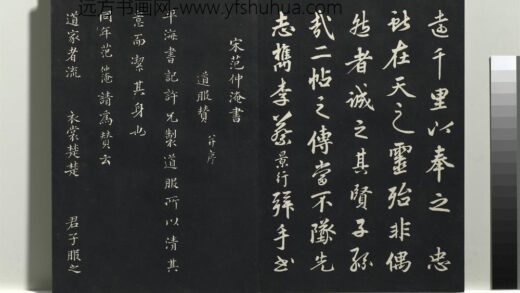 远方书画网-www.yfshuhua.com
遠千里以奉之忠
獻在天之靈殆非偶
然者誠之其賢子孫
哉二帖之傳當不墜先
志檇李蔡景行拜手書
宋范仲淹書
道服贊 并序
平海書記許兄製道服所以清其
意而潔其身也
同年范仲淹請為贊云
道家者流 衣裳楚楚 君子服之